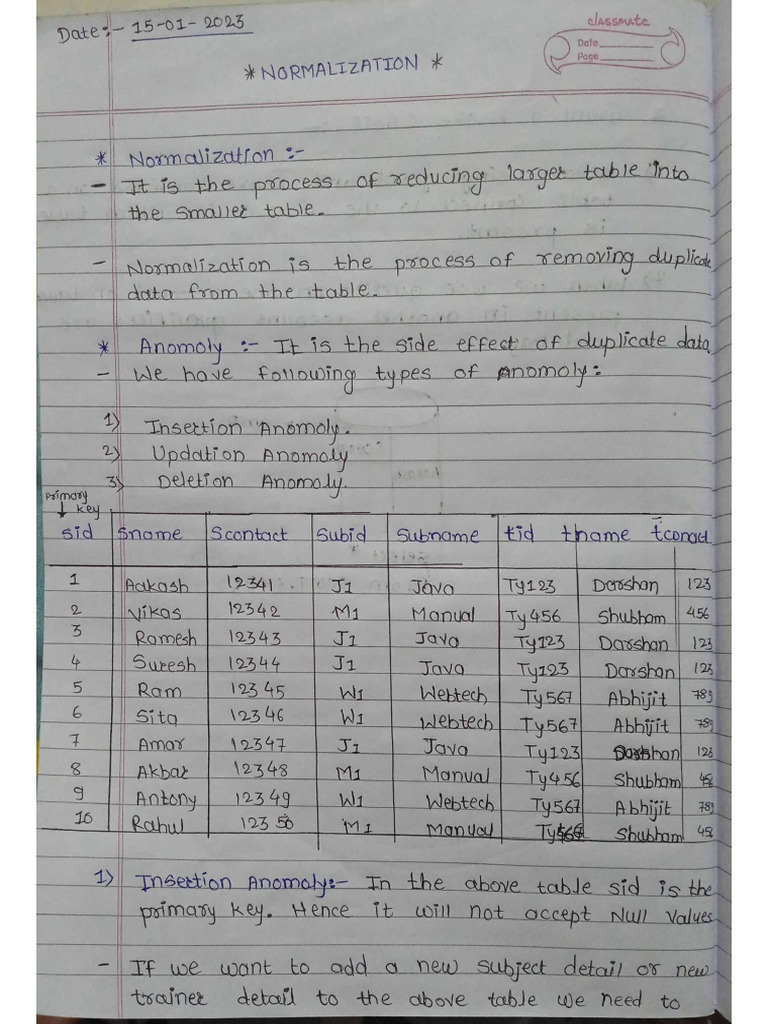 Date:- 15-01-2023
classmate
Date
Page
* NORMALIZATION *
* Normalization :-
- It is the process of reducing larger table into
the smaller table.
- Normalization is the process of removing duplicate
data from the table.
* Anomoly :- It is the side effect of duplicate data
- We have following types of Anomoly:
1) Insertion Anomoly.
2) Updation Anomoly
3) Deletion Anomoly.
primary key
sid Sname Scontact Subid Subname tid tname tcontact
1 Aakash 12341 J1 Java Ty123 Darshan 123
2 Vikas 12342 M1 Manual Ty456 Shubham 456
3 Ramesh 12343 J1 Java Ty123 Darshan 123
4 Suresh 12344 J1 Java Ty123 Darshan 123
5 Ram 12345 W1 Webtech Ty567 Abhijit 789
6 Sita 12346 W1 Webtech Ty567 Abhijit 789
7 Amar 12347 J1 Java Ty123 Darshan 123
8 Akbar 12348 M1 Manual Ty456 Shubham 456
9 Antony 12349 W1 Webtech Ty567 Abhijit 789
10 Rahul 12350 M1 Manual Shubham 456
1) Insertion Anomoly:- In the above table sid is the
primary key. Hence it will not accept Null Values
- If we want to add a new subject detail or new
trainer detail to the above table we need to